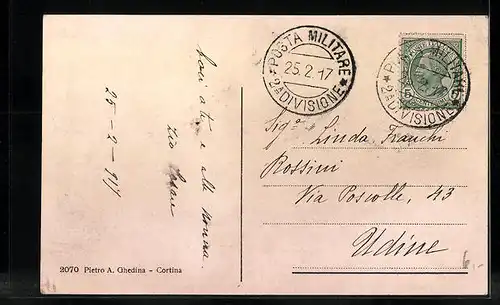 Baci a te e alla nonna.
Zio Cesare
25-2-917
POSTA MILITARE
25.2.17
* 2ª DIVISIONE *
POSTA MILITARE
* 2ª DIVISIONE *
Sigª Linda Franchi
Rossini
Via Poscolle, 43
Udine
6.-
2070 Pietro A. Ghedina - Cortina